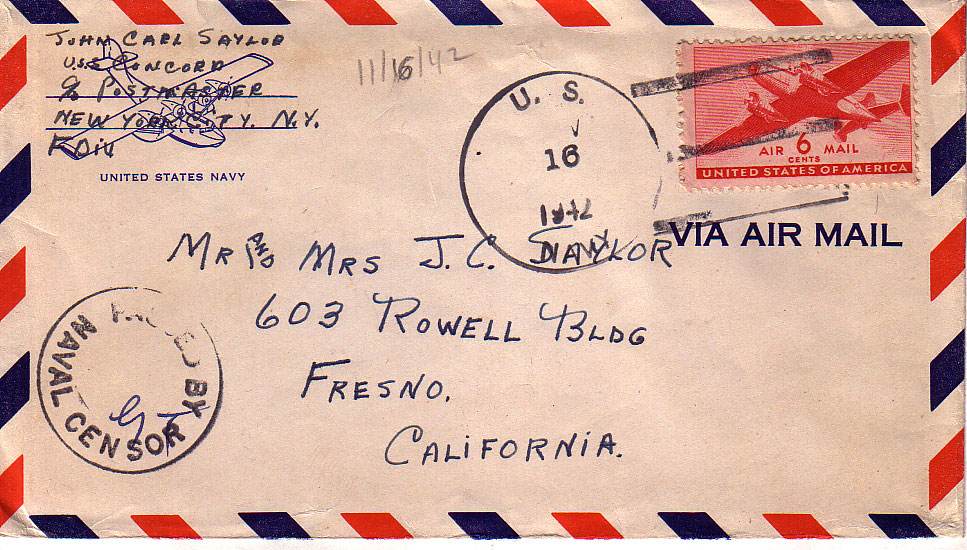 JOHN CARL SAYLOR
U.S.S. CONCORD
c/o POSTMASTER
NEW YORK CITY. N.Y.
F Div
UNITED STATES NAVY
11/16/42
U. S.
16
1942
NAVY
AIR 6 MAIL
CENTS
UNITED STATES OF AMERICA
VIA AIR MAIL
MR AND MRS J.C. SAYLOR
603 ROWELL BLDG
FRESNO.
CALIFORNIA.
PASSED BY
NAVAL CENSOR